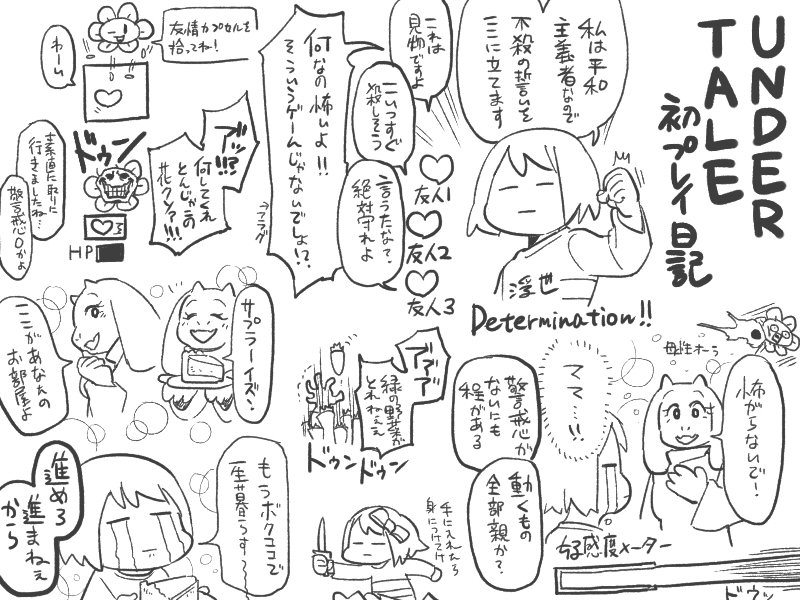 UNDER
TALE
初プレイ日記
私は平和
主義者なので
不殺の誓いを
ここに立てます
これは
見物ですよ
こいつすぐ
殺しそう
言うたなて?
絶対守れよ
友人1
友人2
友人3
浮世
Determination!!
何なの怖いよ!!
そういうゲームじゃないでしょ!?
→フラグ
友情カプセルを
拾ってね!
わーい
ドゥン
アッ!!?
何してくれ
とんじゃこの
花クソァ!!!
3
HP
素直に取りに
行きましたね…
警戒心0かよ
母性れーう
怖がらないで!
ママ…!!
警戒心が
ないにも
程がある
動くもの
全部親か?
好感度メーター
ドゥッ
サプラーイズ♪
ここがあなたの
お部屋よ
アアアア
緑の野菜が
とれねぇぇ
ドゥンドゥン
手に入れたら
身につけてけ
もうボクココで
一生暮らす~
進めろ
進まねぇ
から